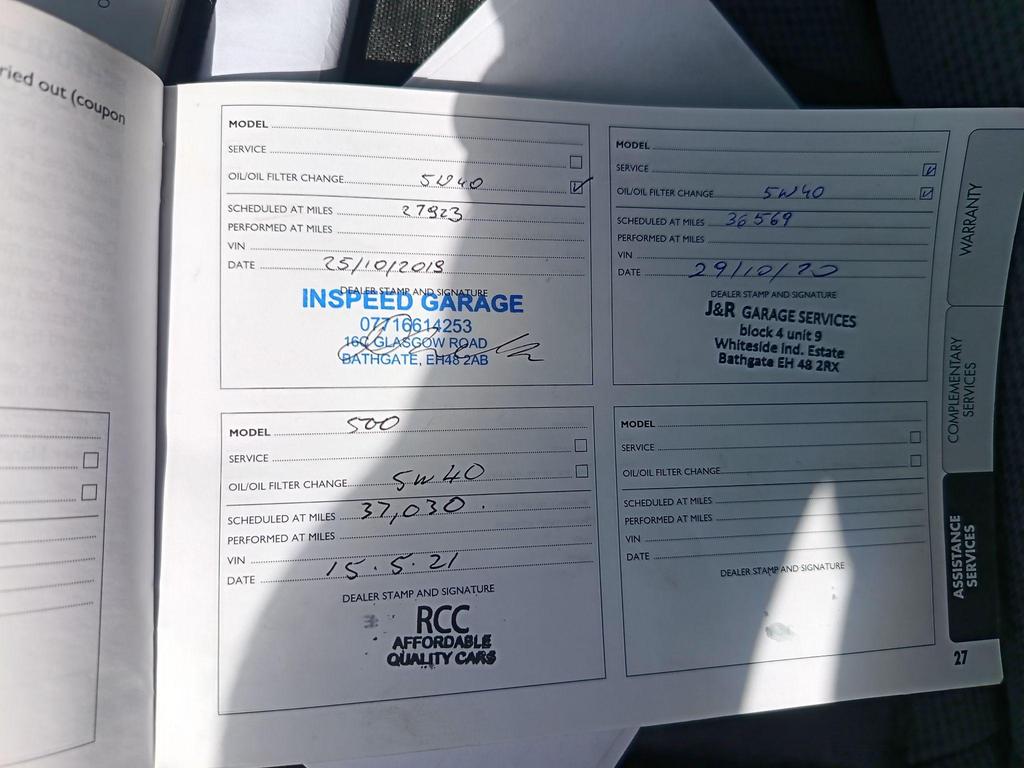 ried out (coupon
MODEL
SERVICE
OIL/OIL FILTER CHANGE 5W40
SCHEDULED AT MILES 27923
PERFORMED AT MILES
VIN
DATE 25/10/2019
DEALER STAMP AND SIGNATURE
INSPEED GARAGE
07716614253
16C GLASGOW ROAD
BATHGATE, EH48 2AB
MODEL
SERVICE
OIL/OIL FILTER CHANGE 5W40
SCHEDULED AT MILES 36569
PERFORMED AT MILES
VIN
DATE 29/10/20
DEALER STAMP AND SIGNATURE
J&R GARAGE SERVICES
block 4 unit 9
Whiteside Ind. Estate
Bathgate EH 48 2RX
MODEL 500
SERVICE
OIL/OIL FILTER CHANGE 5W40
SCHEDULED AT MILES 37,030.
PERFORMED AT MILES
VIN
DATE 15.5.21
DEALER STAMP AND SIGNATURE
RCC
AFFORDABLE
QUALITY CARS
MODEL
SERVICE
OIL/OIL FILTER CHANGE
SCHEDULED AT MILES
PERFORMED AT MILES
VIN
DATE
DEALER STAMP AND SIGNATURE
WARRANTY
COMPLEMENTARY
SERVICES
ASSISTANCE
SERVICES
27